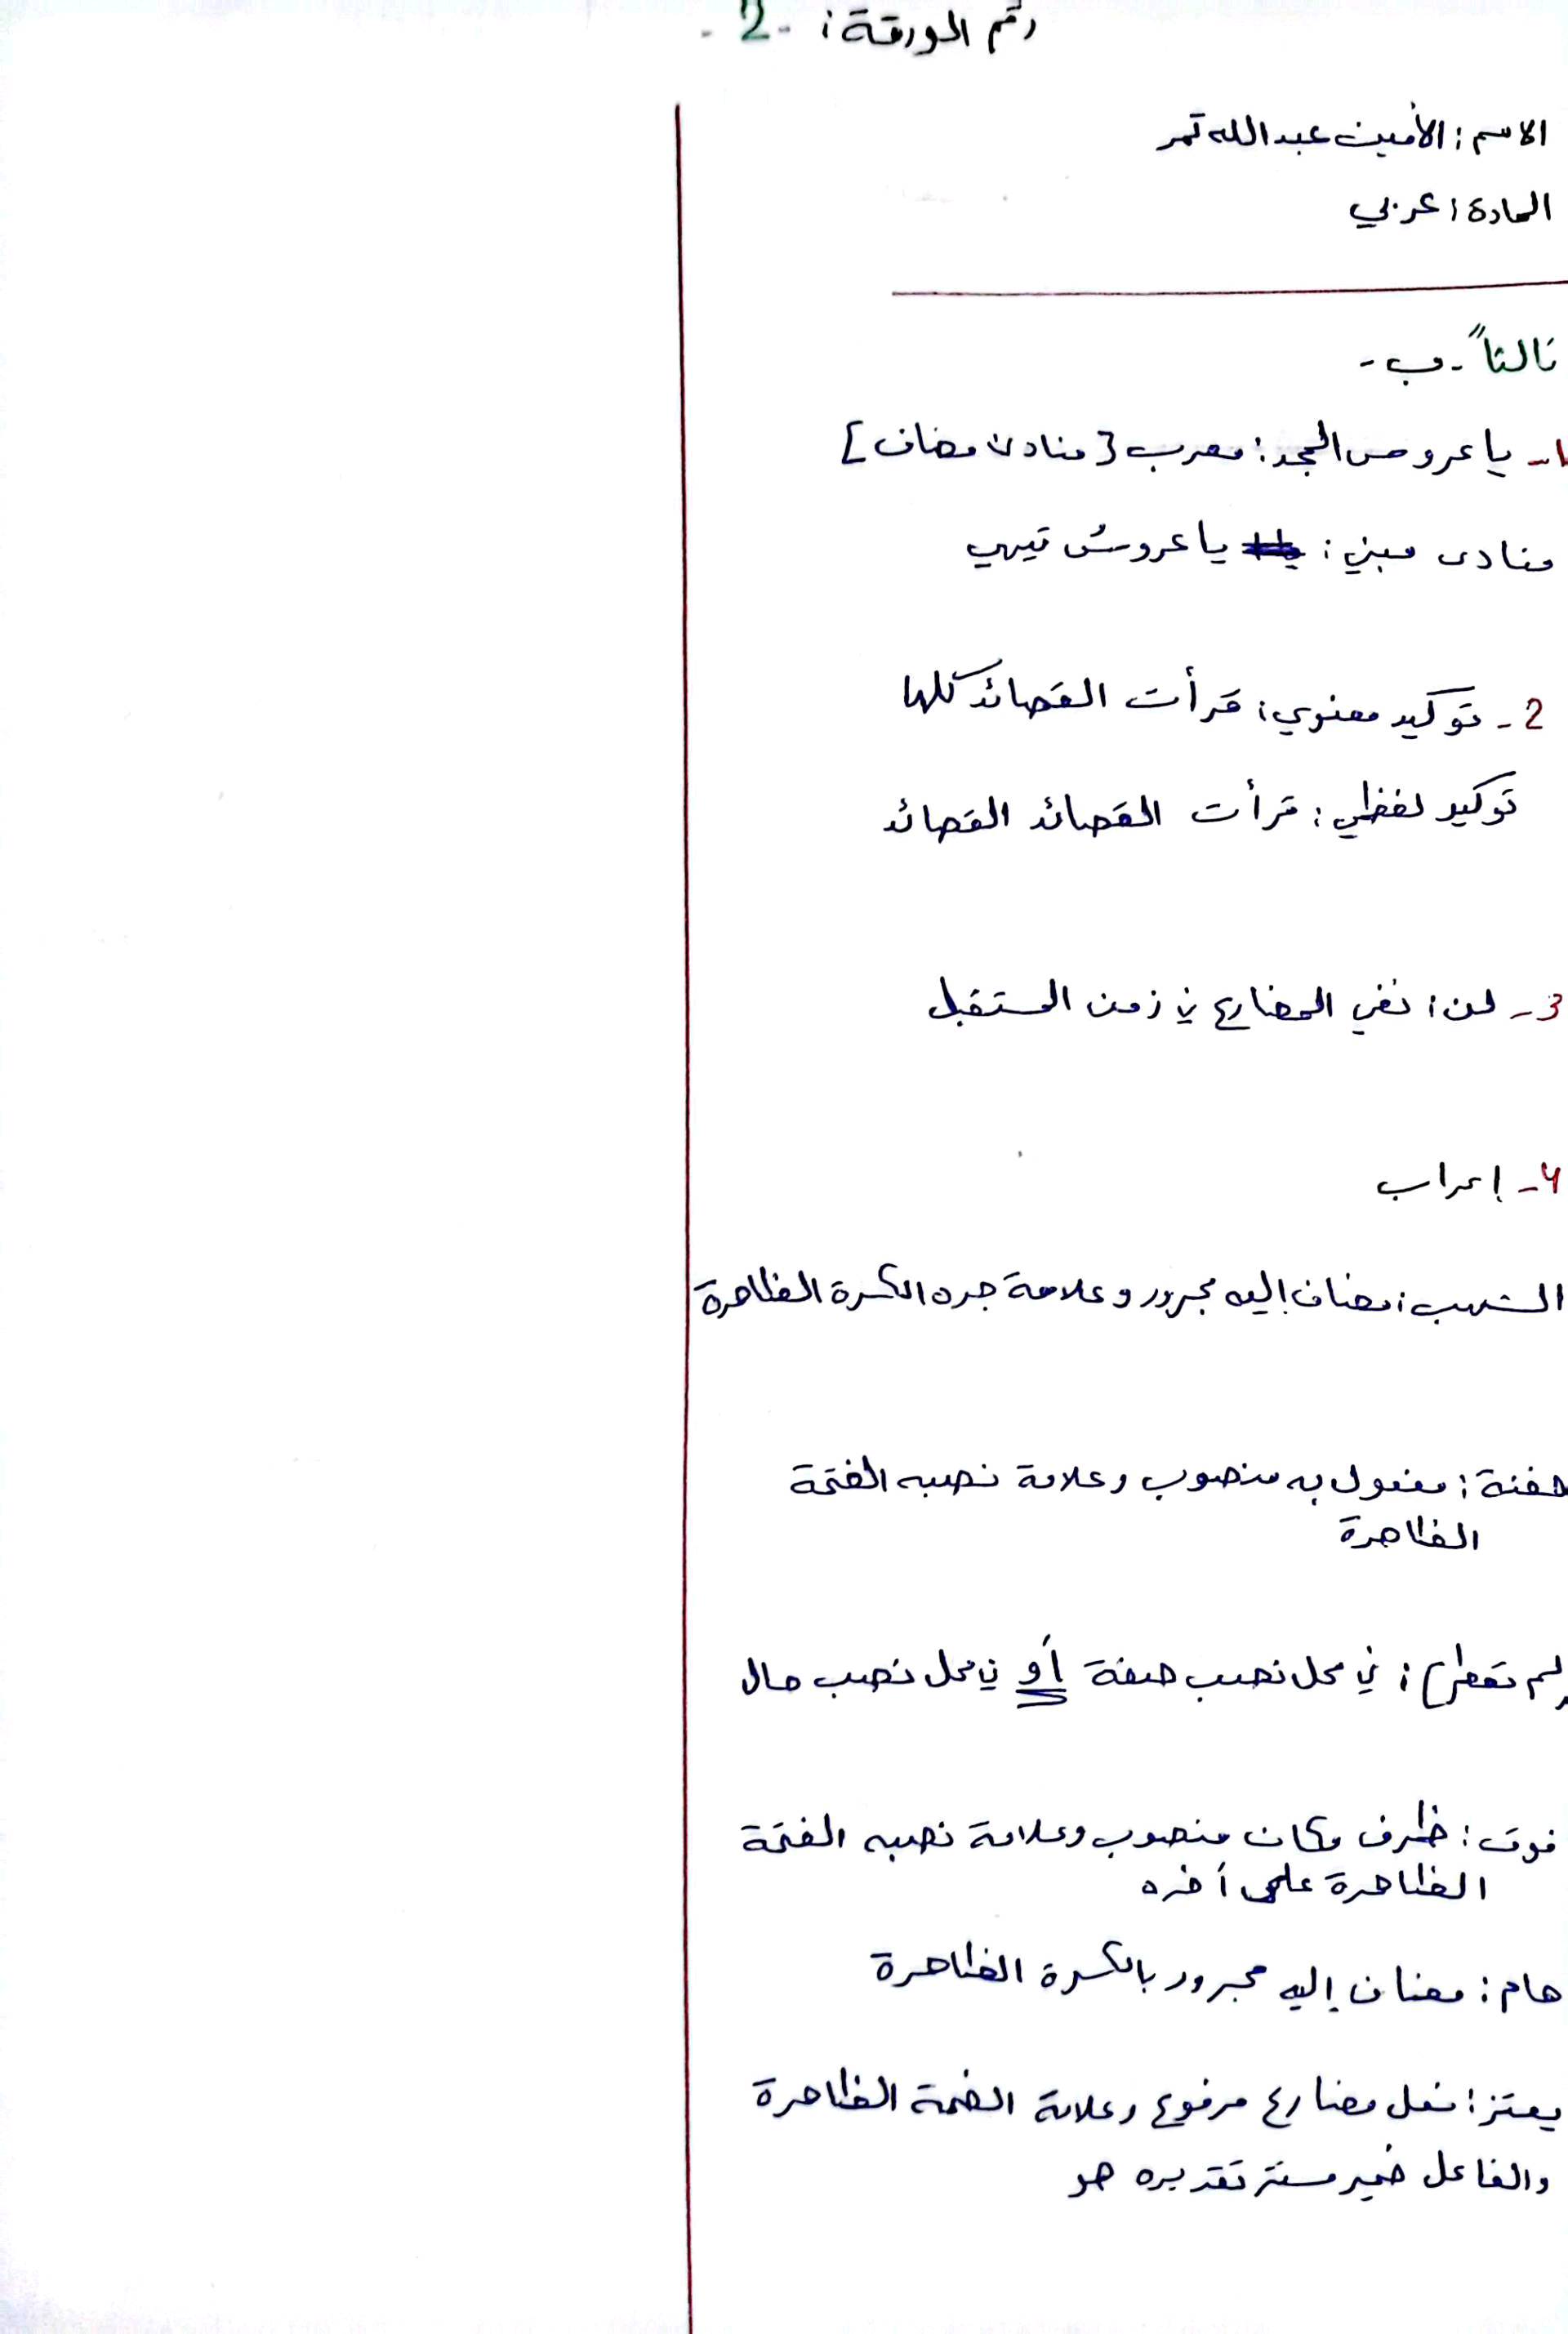 رقم الورقة : - 2 -
الاسم : الأمين عبد الله تمر
المادة : عربي
ثالثاً - ب -
1- يا عروس المجد : معرب [منادى مضاف]
منادى مبني : يا عروسُ تيهي
2 - توكيد معنوي : قرأت القصائد كلها
توكيد لفظي : قرأت القصائد القصائد
3- لن : نفي المضارع في زمن المستقبل
4- إعراب
الشهب : مضاف إليه مجرور وعلامة جره الكسرة الظاهرة
حفنة : مفعول به منصوب وعلامة نصبه الفتحة
الظاهرة
لم تعطر) : في محل نصب صفة أو في محل نصب حال
فوق : ظرف مكان منصوب وعلامة نصبه الفتحة
الظاهرة على أخره
هام : مضاف إليه مجرور بالكسرة الظاهرة
يعتز : فعل مضارع مرفوع وعلامة الضمة الظاهرة
والفاعل ضمير مستتر تقديره هو